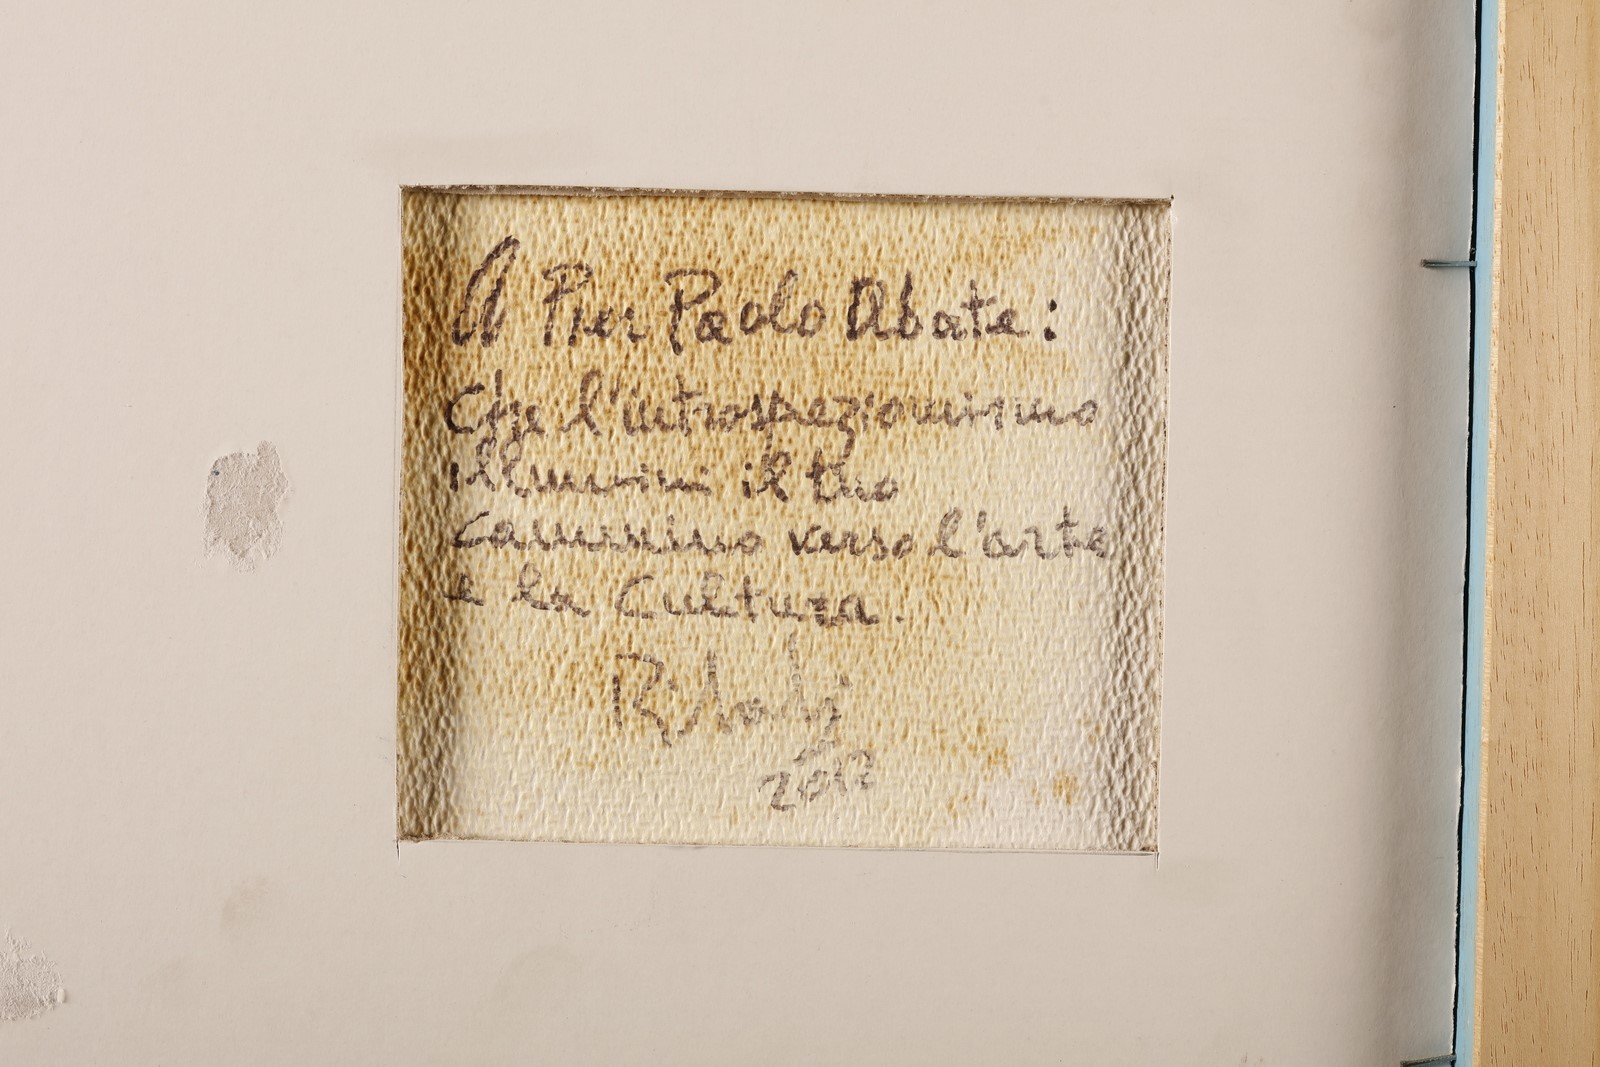 A Pier Paolo Abate:
Che l'introspezionismo
illumini il tuo
cammino verso l'arte
e la Cultura.